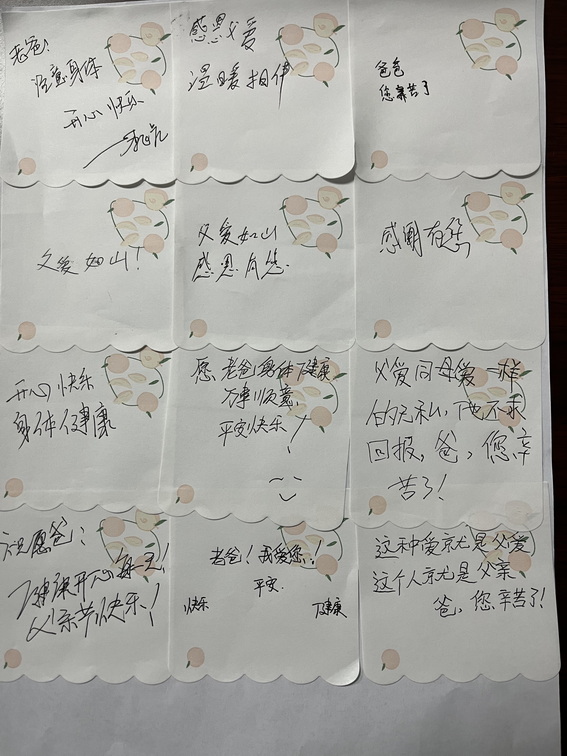 老爸!
注意身体
开心快乐
感恩父爱
温暖相伴
爸爸
您辛苦了
父爱如山!
父爱如山
感恩有您.
感谢有您
开心快乐
身体健康
愿老爸身体健康
万事顺意
平安快乐!
父爱同母爱一样
的无私,他不求
回报,爸,您辛
苦了!
祝愿爸:
健康开心每一天!
父亲节快乐!
老爸!我爱您!
平安.
快乐 健康
这种爱就是父爱
这个人就是父亲
爸,您辛苦了!